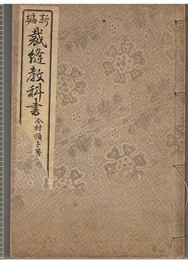 新編
裁縫教科書
今村順子著